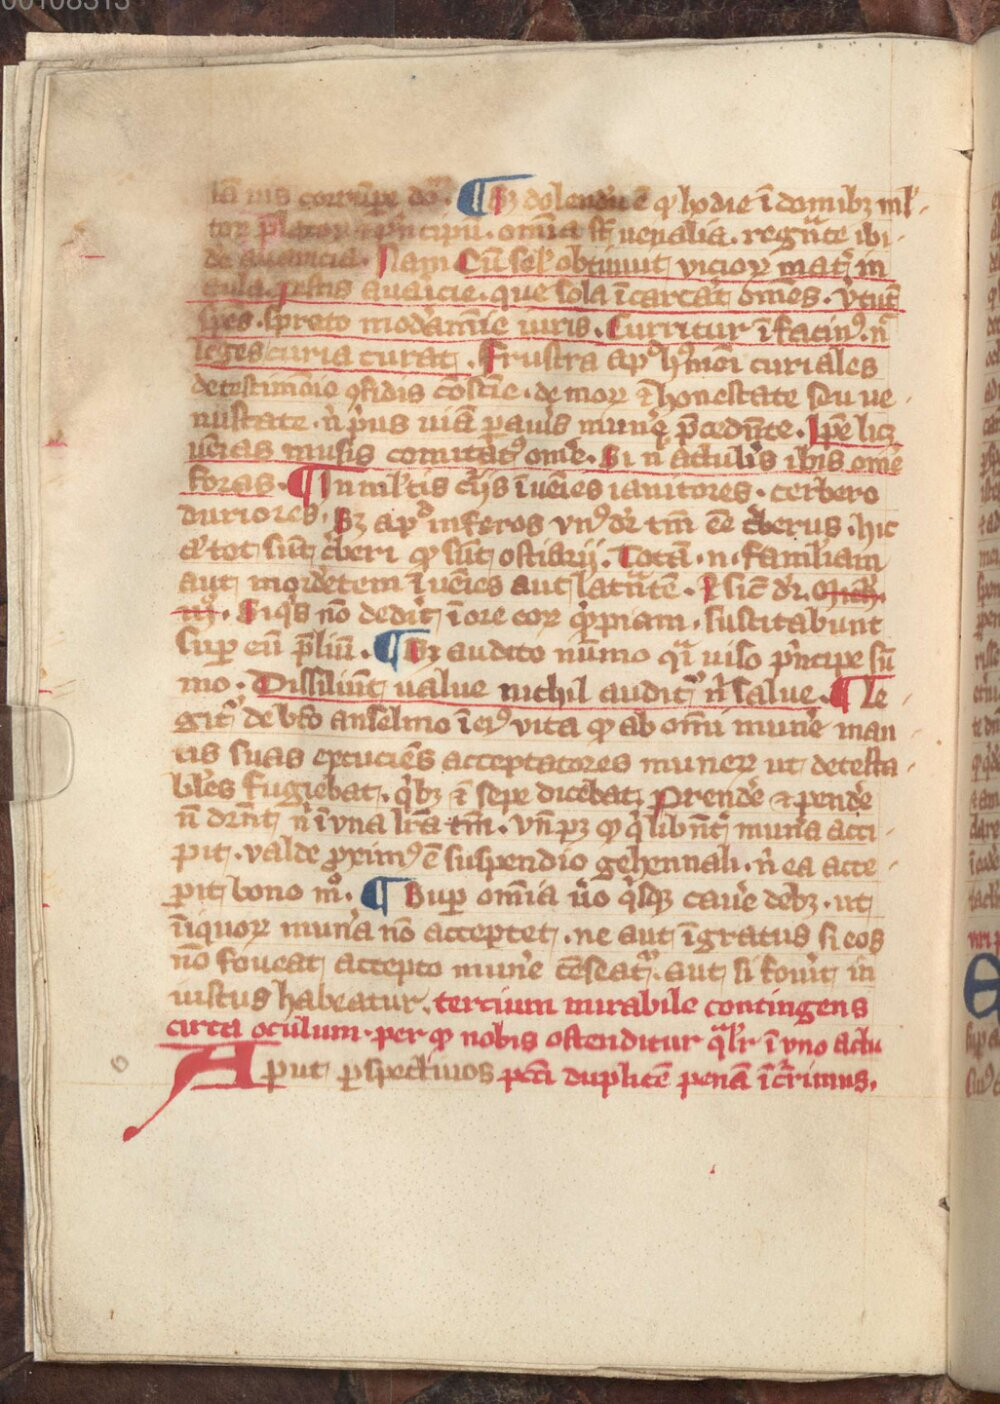 00108313
ꝯ dolendū ē ꝙ hodie ī domibꝫ ml'
toꝝ p̄latoꝝ ⁊ p̄ncipū. omīa st̄ uenalia. regn̄te ibi
de auaricia. Nam Cū sel' obtinuit vicioꝝ mat̄ in
aula pestis auaicie. que sola īcarcat̄ om̄es. v̓tut̄
spes. spreto mod̓amīe iuris. Curritur ī facin⁹. n̄
leges curia curat. Frustra apᵈ h⁹moi curiales
de testimōio ꝯfidis cōsciē. de moꝝ ⁊ honestate seu ue
nustate. n̄ p̓us uiā ꝑauis mun̓ꝫ p̄cedn̄te. Ip̄e licꝫ
uenias musis comitat⁹ om̓e. Si n̄ attul̓is ibis om̓e
foras. ¶ In ml̓tis c̓iis īuēies ianitores. cerbero
duriores. Sꝫ apᵈ inferos vn⁹ dr̄ tm̄ eē cb̓erus. hic
ū tot sūt cb̓eri ꝙ sūt ostiarij. Totā .n. familiam
aut mord̓etem īuēies aut latn̄tē. ⁊ sic dr̄. Mich.
iij. Siq̓s nō ded̓it ī ore eoꝝ q̓ppiam. suscitabunt
sup eū p̄liū. ¶ Ex audito nūmo qᵃ̄ uiso p̓ncipe sū
mo. Dissiliūt ualue nichil audit̄ n̓ salue. ¶ Le
git̄ de bt̄o anselmo ī ei⁹ vita ꝙ ab om̄i mun̓e man
us suas excuciēs acceptatores muneꝝ ut detesta
bl̓es fugiebat. q̓bꝫ ⁊ sepe dicebat. Prend̓e ⁊ pend̓e
n̄ dr̄nt n̓ ī vna lr̄a tm̄. Vn̄ pꝫ ꝙ q̓ libn̄t̄ mun̓a acci
pit. valde ꝓxim⁹ ē suspendio gehennali. n̓ ea acce
pit bono mᵒ. ¶ Sup om̄ia ū̓o q̓sqꝫ cau̓e debꝫ. ut
īiquoꝝ mun̓a nō acceptet. ne aut īgratus si eos
nō foueat accepto mun̓e cēseat̄. aut si fou̓it in
iustus habeatur. tercium mirabile contingens
circa oculum. per ꝙ nobis ostenditur qᵃl̓r ī vno actu
Aput ꝑspectiuos pccī duplicē penā īcr̓rimus.